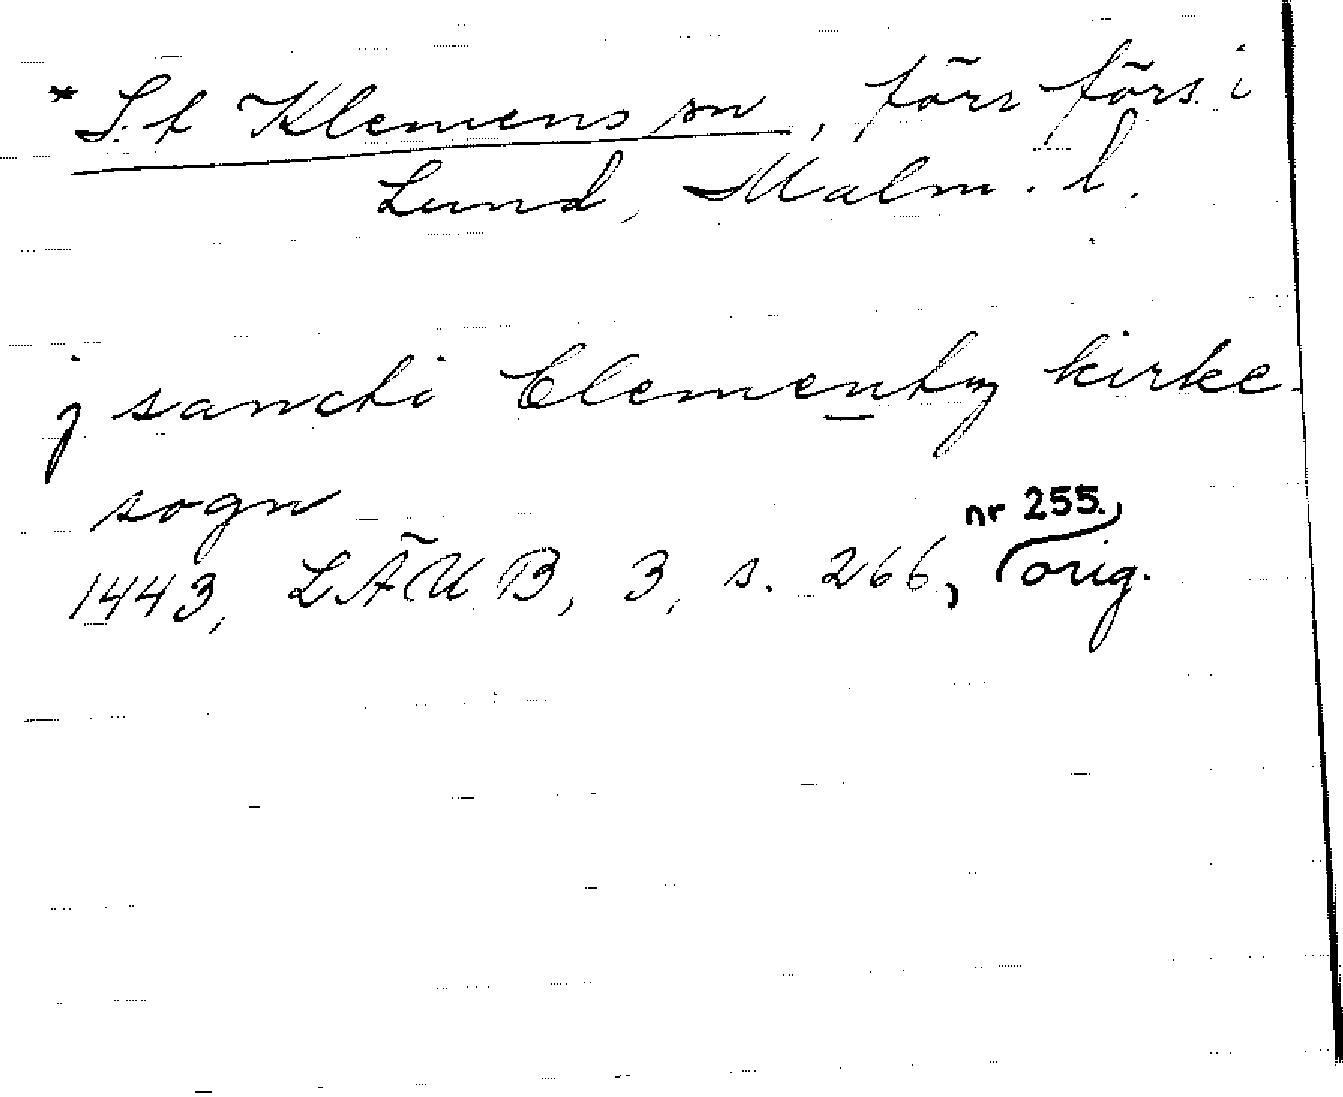 * S:t Klemens sn, förr förs. i
Lund, Malm. l.
j sancti Clementy kirke-
sogn
nr 255.
1443, LÄUB, 3, s. 266, orig.